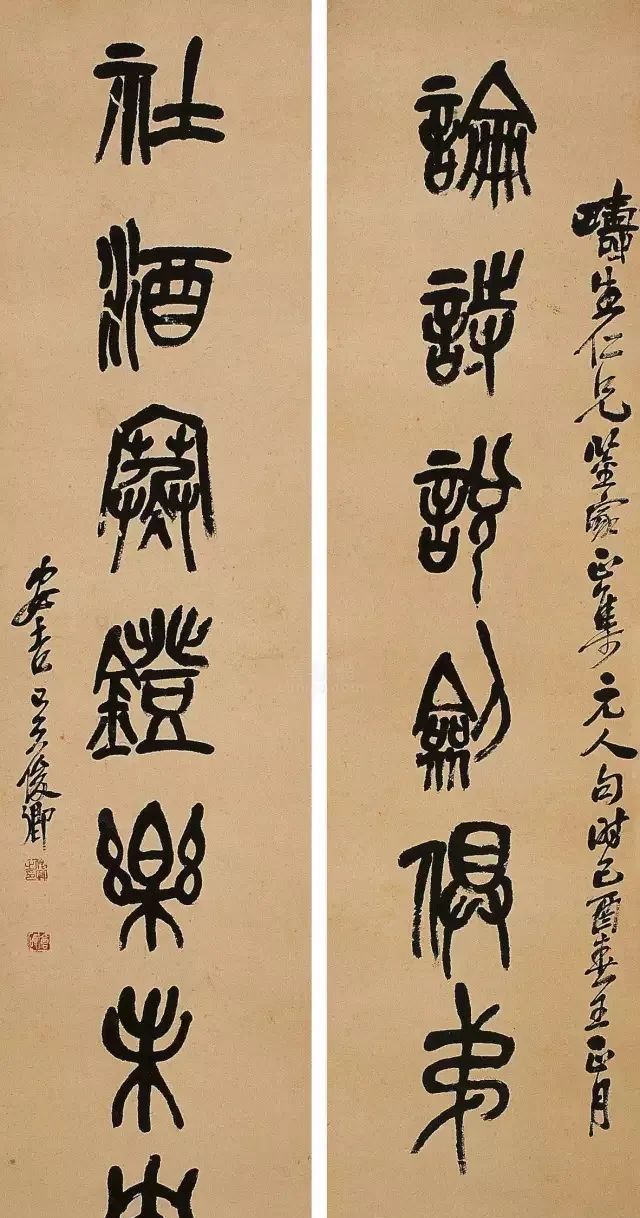 疇生仁兄鑒家正集元人句時己酉春王正月
論詩說劍俱弟
社酒寒鐙樂未
安吉吳俊卿